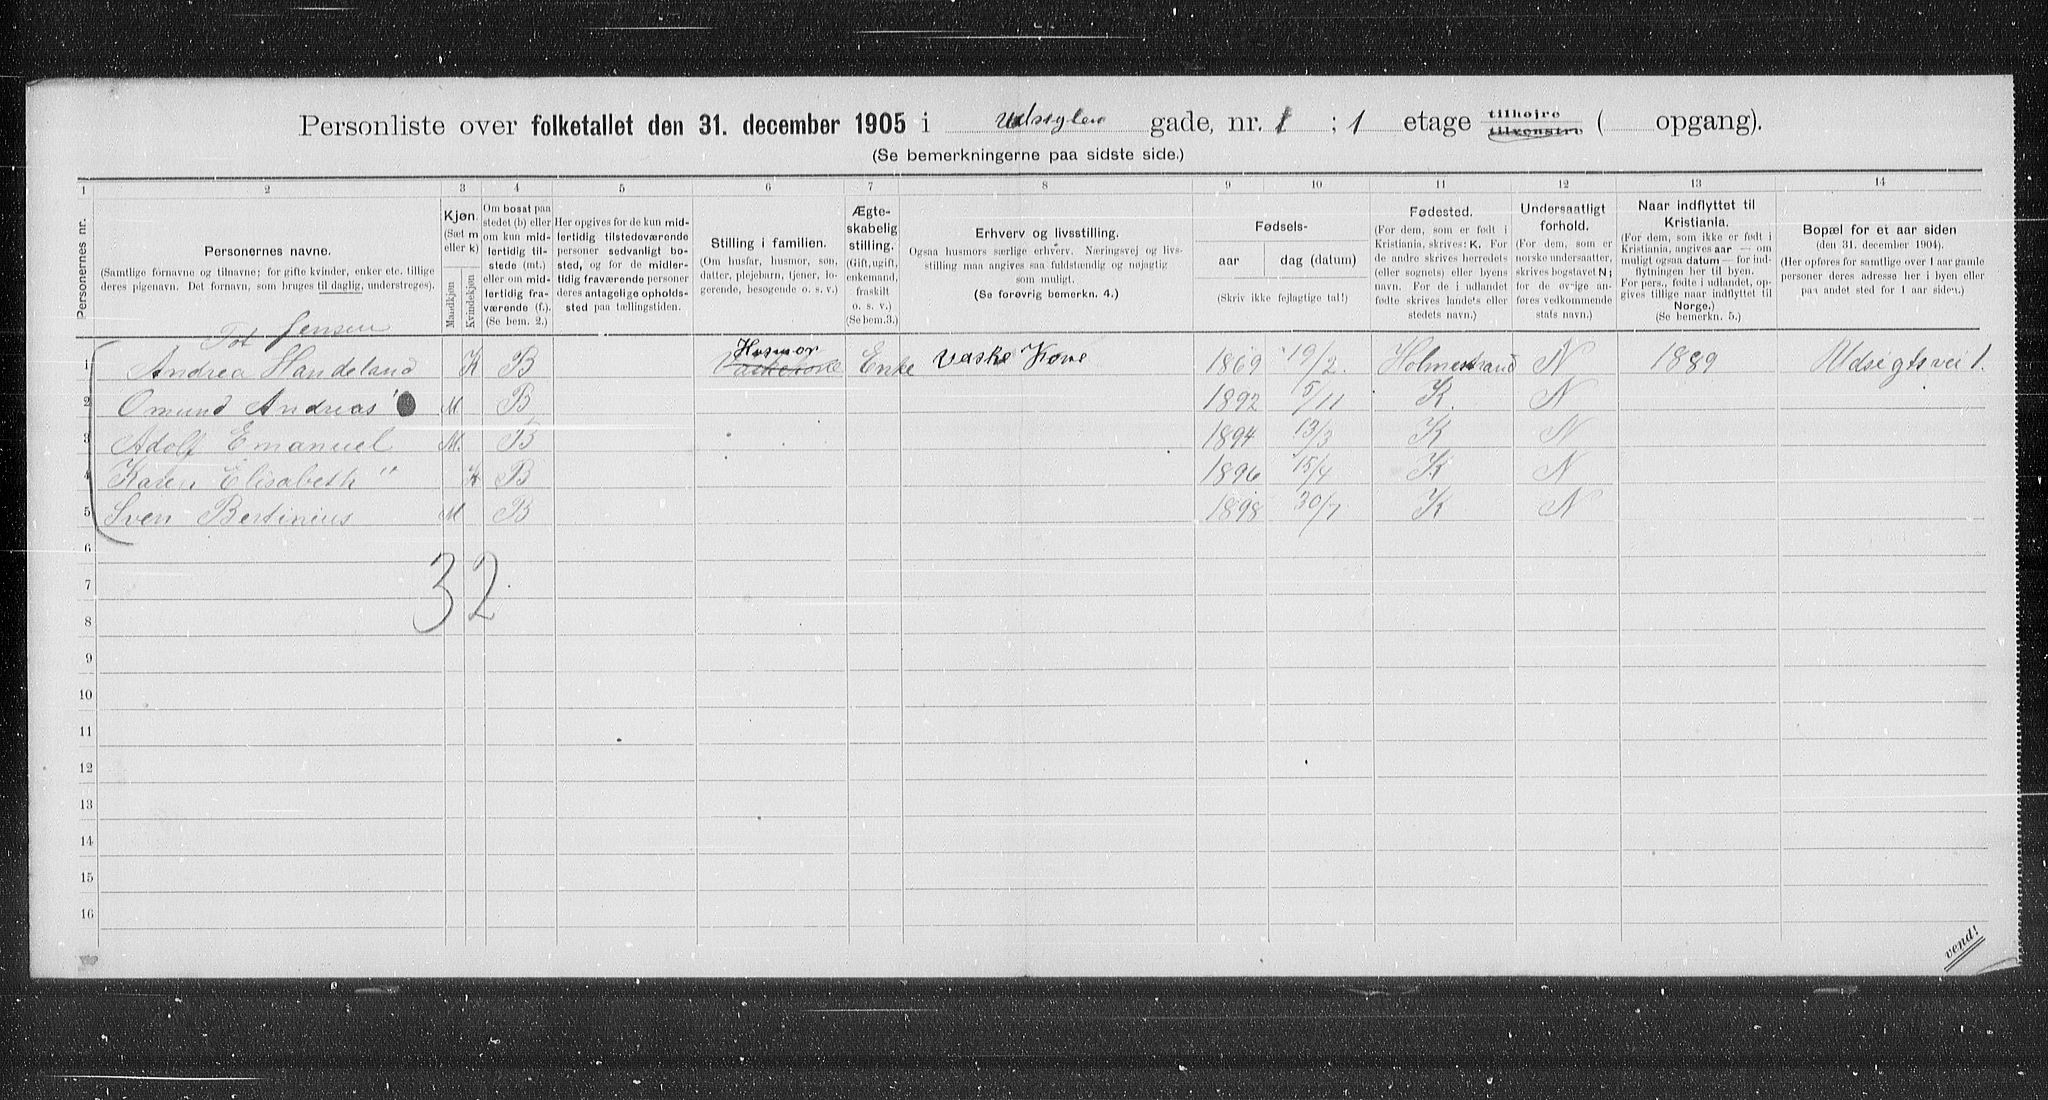 Personliste over folketallet den 31. december 1905 i Udsigten gade, nr. 1 ; 1 etage tilhøjre tilvenstre ( opgang).
(Se bemerkningerne paa sidste side.)
1 2 3 4 5 6 7 8 9 10 11 12 13 14
Personernes nr.
Personernes navne.
(Samtlige fornavne og tilnavne; for gifte kvinder, enker etc. tillige
deres pigenavn. Det fornavn, som bruges til daglig, understreges).
Kjøn.
(Sæt m
eller k)
Mandkjøn
Kvindekjøn
Om bosat paa
stedet (b) eller
om kun mid-
lertidig til-
stede (mt.)
eller om mid-
lertidig fra-
værende (f.).
(Se bem. 2.)
Her opgives for de kun mid-
lertidig tilstedeværende
personer sedvanligt bo-
sted, og for de midler-
tidig fraværende personer
deres antagelige opholds-
sted paa tællingstiden.
Stilling i familien.
(Om husfar, husmor, søn,
datter, plejebarn, tjener, lo-
gerende, besøgende o. s. v.)
Ægte-
skabelig
stilling.
(Gift, ugift,
enkemand,
fraskilt
o. s. v.)
(Se bem. 3.)
Erhverv og livsstilling.
Ogsaa husmors særlige erhverv. Næringsvej og livs-
stilling maa angives saa fuldstændig og nøjagtig
som muligt.
(Se forøvrig bemerkn. 4.)
Fødsels-
aar
dag (datum)
(Skriv ikke fejlagtige tal!)
Fødested.
(For dem, som er født i
Kristiania, skrives: K. For
de andre skrives herredets
(eller sognets) eller byens
navn. For de i udlandet
fødte skrives landets eller
stedets navn.)
Undersaatligt
forhold.
(For norske
undersaatter,
skrives bogstavet N;
for de øvrige an-
føres vedkommende
stats navn.)
Naar indflyttet til
Kristiania.
(For dem, som ikke er født i
Kristiania, angives aar — om
muligt ogsaa datum — for ind-
flytningen her til byen.
For pers., fødte i udlandet, op-
gives tillige naar indflyttet til
Norge.)
(Se bemerkn. 5.)
Bopæl for et aar siden
(den 31. december 1904).
(Her opføres for samtlige over 1 aar gamle
personer deres adresse her i byen eller
paa andet sted for 1 aar siden.)
Jensen
Husmor
1 Andrea Handeland K B Enke Vaske Kone 1869 19/2. Holmestrand N 1889 Udsigtsvei 1.
2 Omund Andreas " M B 1892 5/11 K. N
3 Adolf Emanuel M. B 1894 13/3 K N
4 Karen Elisabeth " K B 1896 15/4 K N
5 Sven Bertinius M B 1898 30/7 K N
6
32
7
8
9
10
11
12
13
14
15
16
vend!